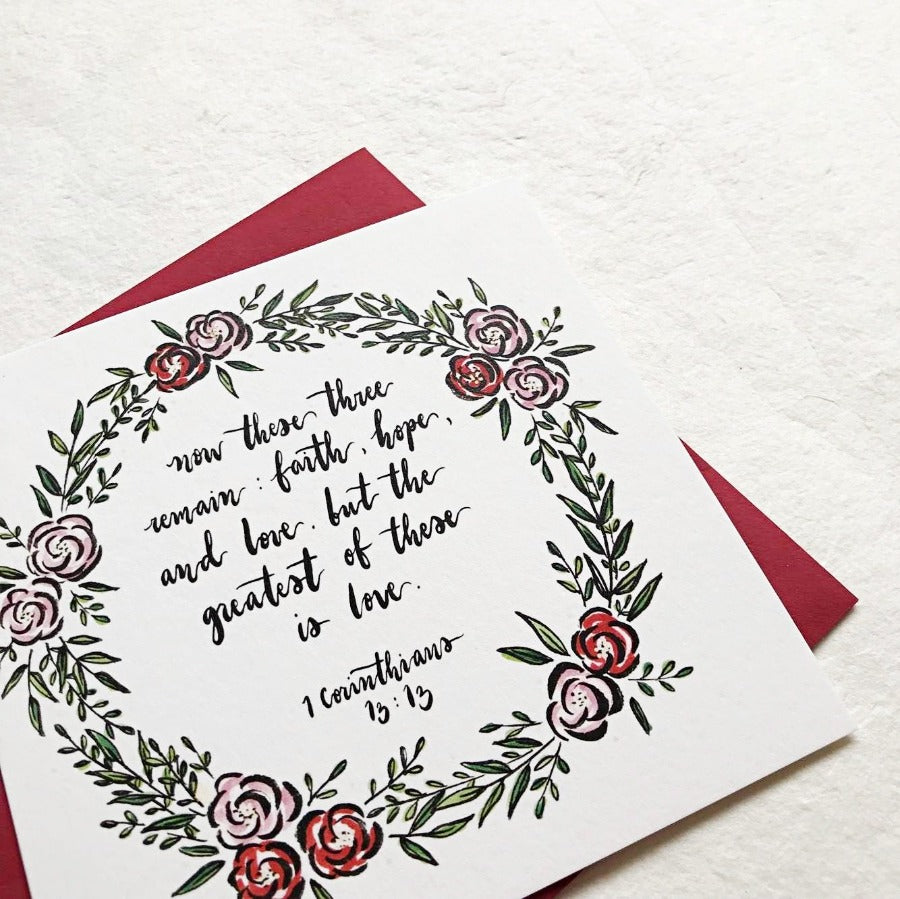 now these three
remain : faith, hope,
and love. but the
greatest of these
is love.
1 corinthians
13:13